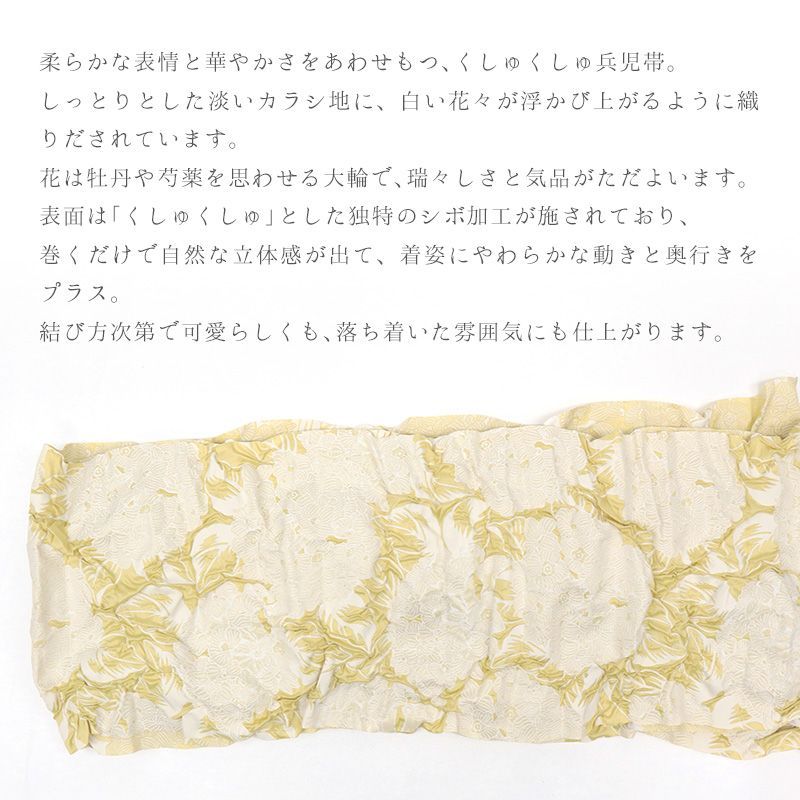 柔らかな表情と華やかさをあわせもつ、くしゅくしゅ兵児帯。
しっとりとした淡いカラシ地に、白い花々が浮かび上がるように織
りだされています。
花は牡丹や芍薬を思わせる大輪で、瑞々しさと気品がただよいます。
表面は「くしゅくしゅ」とした独特のシボ加工が施されており、
巻くだけで自然な立体感が出て、着姿にやわらかな動きと奥行きを
プラス。
結び方次第で可愛らしくも、落ち着いた雰囲気にも仕上がります。